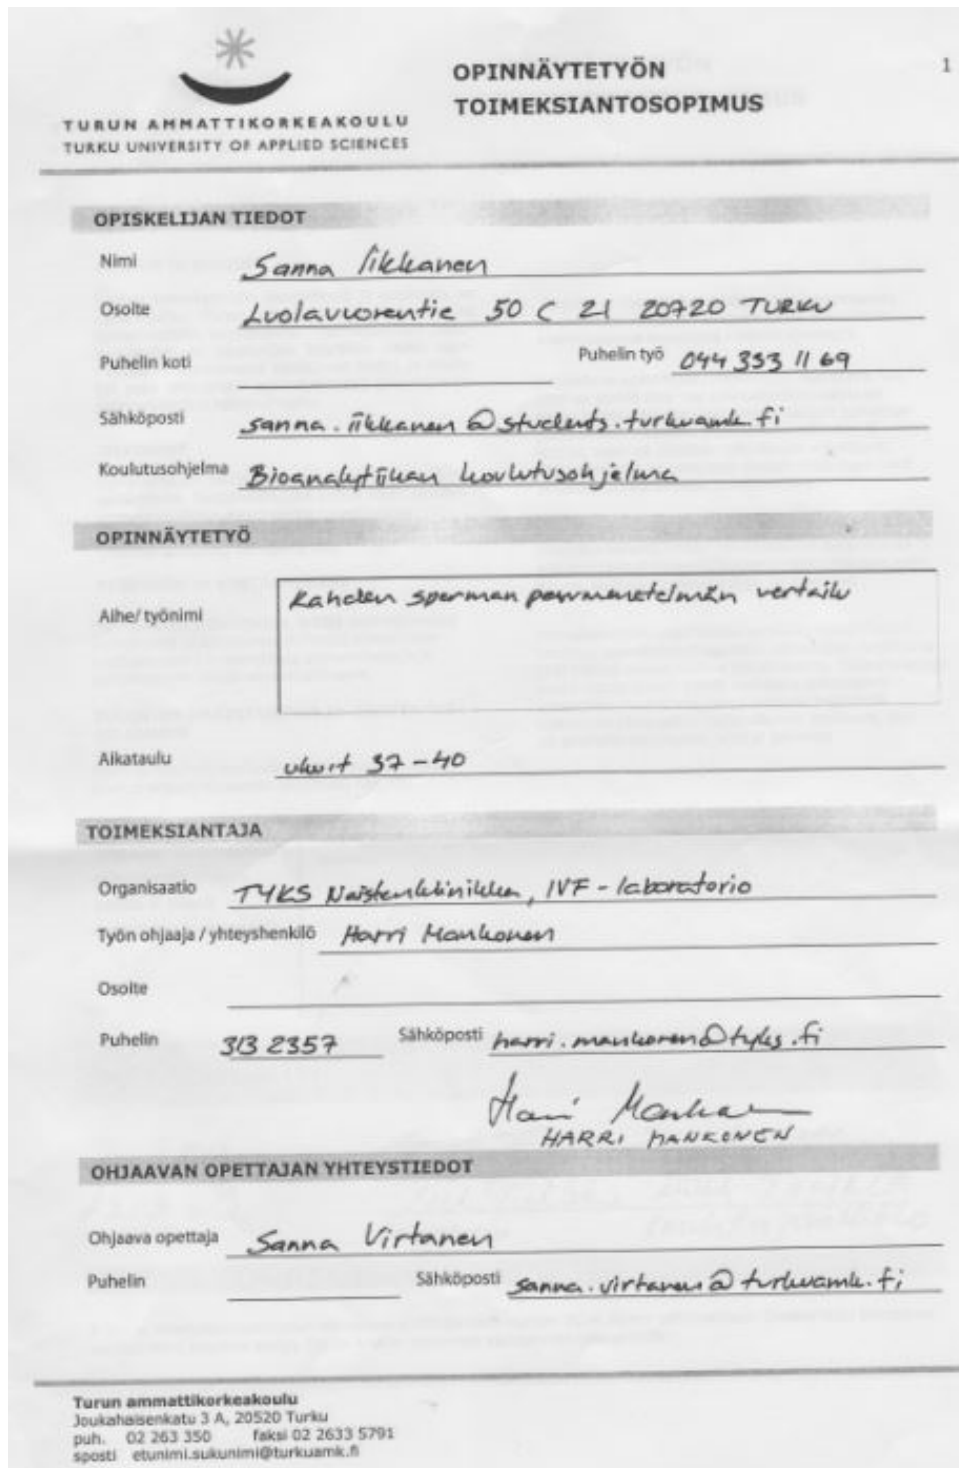 TURUN AMMATTIKORKEAKOULU
TURKU UNIVERSITY OF APPLIED SCIENCES
OPINNÄYTETYÖN
TOIMEKSIANTOSOPIMUS
1
OPISKELIJAN TIEDOT
Nimi Sanna Iikkanen
Osoite Luolavuorentie 50 C 21 20720 TURKU
Puhelin koti Puhelin työ 044 333 11 69
Sähköposti sanna.iikkanen@students.turkuamk.fi
Koulutusohjelma Bioanalytiikan koulutusohjelma
OPINNÄYTETYÖ
Aihe/ työnimi Kahden sperman pesumenetelmän vertailu
Aikataulu viikot 37-40
TOIMEKSIANTAJA
Organisaatio TYKS Naistenklinikka, IVF-laboratorio
Työn ohjaaja / yhteyshenkilö Harri Mankonen
Osoite
Puhelin 313 2357 Sähköposti harri.mankonen@tyks.fi
Harri Mankonen
HARRI MANKONEN
OHJAAVAN OPETTAJAN YHTEYSTIEDOT
Ohjaava opettaja Sanna Virtanen
Puhelin Sähköposti sanna.virtanen@turkuamk.fi
Turun ammattikorkeakoulu
Joukahaisenkatu 3 A, 20520 Turku
puh. 02 263 350 faksi 02 2633 5791
sposti etunimi.sukunimi@turkuamk.fi